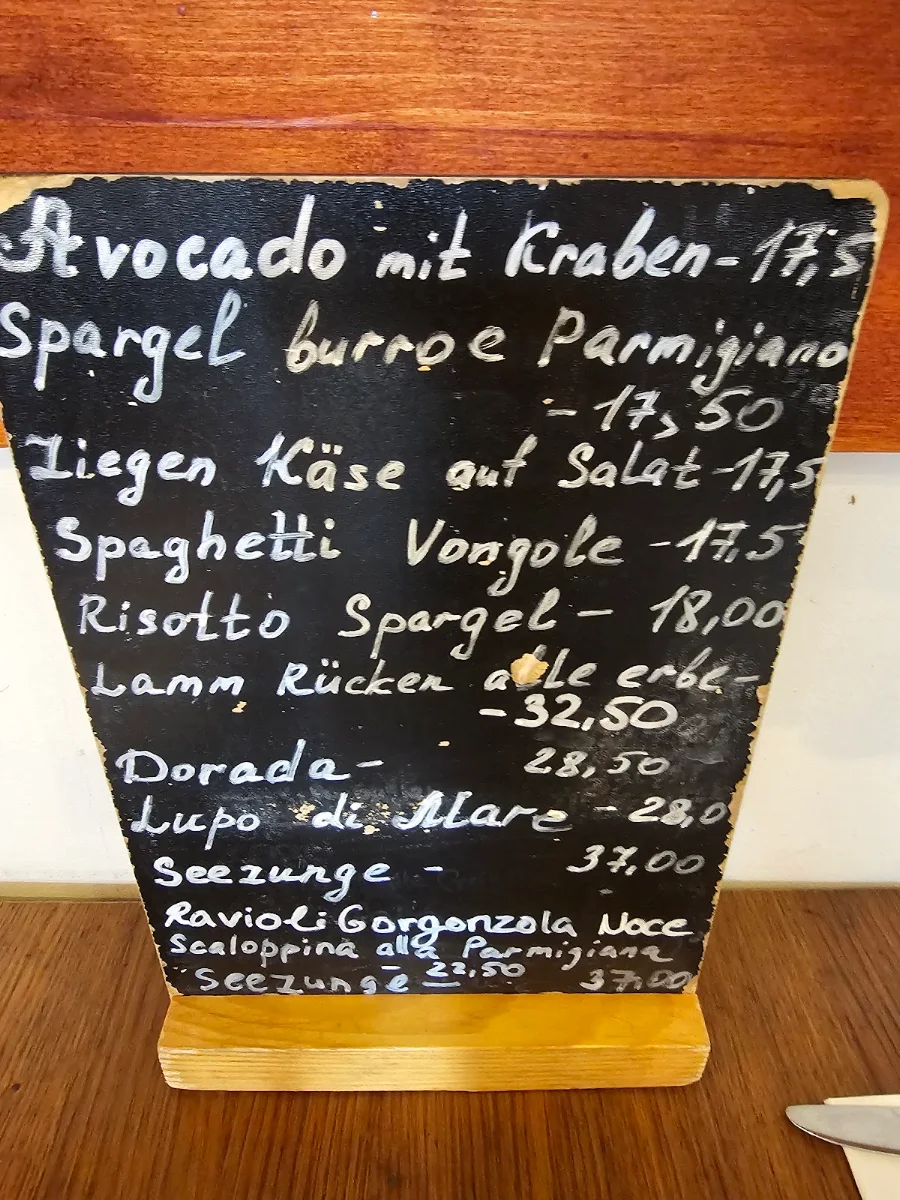 Avocado mit Kraben - 17,5
Spargel burro e Parmigiano
- 17,50
Ziegen Käse auf Salat - 17,5
Spaghetti Vongole - 17,5
Risotto Spargel - 18,00
Lamm Rücken alle erbe -
- 32,50
Dorada - 28,50
Lupo di Mare - 28,0
Seezunge - 37,00
Ravioli Gorgonzola Noce
Scaloppina alla Parmigiana
- 22,50
Seezunge - 37,00